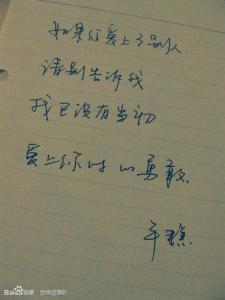 如果你爱上了别人
请别告诉我
我已没有当初
爱上你时的勇敢
Bai贴吧